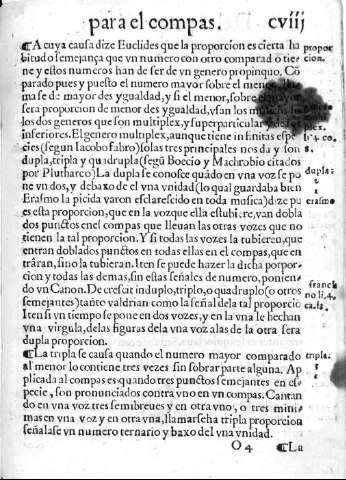 para el compas. cviij
¶A cuya causa dize Euclides que la proporcion es cierta ha
bitud o semejança que vn numero con otro comparado tie-
ne y estos numeros han de ser de vn genero propinquo. Cõ
parado pues y puesto el numero mayor sobre el menor,
ma se de mayor desygualdad, y si el menor, sobre el mayor
sera proporcion de menor desygualdad, vsan los musicos
los dos generos que son multiplex, y superparticular y de
inferiores. El genero multiplex, aunque tiene infinitas espe
cies (segun Iacobo fabro) solas tres principales nos da y son
dupla, tripla y quadrupla (segũ Boecio y Machrobio citados
por Plutharco) La dupla se conosce quãdo en vna voz se po
ne vn dos, y debaxo de el vna vnidad (lo qual guardaba bien
Erasmo la picida varon esclarescido en toda musica) dize pu
es esta proporcion, que en la voz que ella estubire, van dobla
dos punctos en el compas que lleuan las otras vozes que no
tienen la tal proporcion. Y si todas las vozes la tubieren, que
entran doblados punctos en todas ellas en el compas, que en
trâran, sino la tubieran. Iten se puede hazer la dicha porpor-
cion y todas las demas, sin ellas señales de numero, ponien-
do vn Canon. De crescat in duplo, triplo, o quadruplo (o otros
semejantes) tãto valdrian como la señal de la tal proporciõ
Iten si vn tiempo se pone en dos vozes, y en la vna le hechan
vna virgula, delas figuras dela vna voz alas de la otra sera
dupla proporcion.
¶La tripla se causa quando el numero mayor comparado
al menor lo contiene tres vezes sin sobrar parte alguna. Ap
plicada al compas es quando tres punctos semejantes en es-
pecie, son pronunciados contra vno en vn compas. Cantan
do en vna voz tres semibreues y en otra vno, o tres mini-
mas en vna voz y en otra vna, llamarseha tripla proporcion
señalase vn numero ternario y baxo del vna vnidad.
O 4 ¶La
propor
cion.
dupla:
2
1
erasmo
franck
no li. 4.
ca. 11.
tripla:
3
1